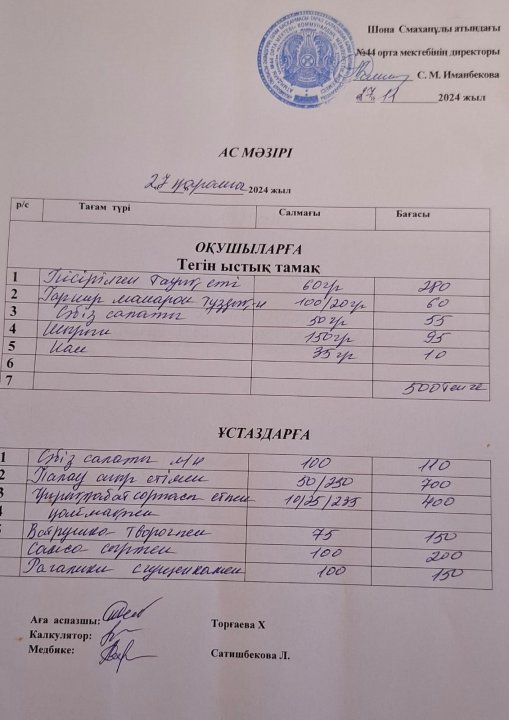 Шона Смаханұлы атындағы
№44 орта мектебінің директоры
С. М. Иманбекова
27. 11 2024 жыл
АС МӘЗІРІ
27 қараша 2024 жыл
р/с Тағам түрі Салмағы Бағасы
ОҚУШЫЛАРҒА
Тегін ыстық тамақ
1 Пісірілген тауық еті 60гр 280
2 Гарнир макарон тұздық 100/20гр 60
3 Сәбіз салаты 50гр 55
4 150гр 95
5 Нан 35гр 10
6
7 500 теңге
ҰСТАЗДАРҒА
1 Сәбіз салаты м/н 100 110
2 Палау сиыр етімен 50/250 700
3 сорпасы етпен 10/25/235 400
4
Ватрушка творогпен 75 150
Самса 100 200
Рагалики сгущенкамен 100 150
Аға аспазшы:
Калкулятор: Торғаева Х
Медбике: Сатишбекова Л.